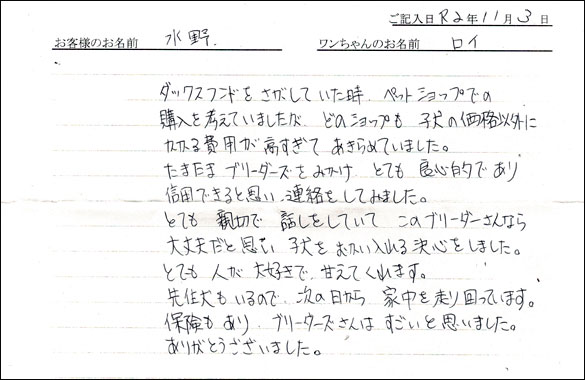 ご記入日 R2年11月3日
お客様のお名前 水野 ワンちゃんのお名前 ロイ
ダックスフンドをさがしていた時、ペットショップでの
購入を考えていましたが、どのショップも子犬の価格以外に
かかる費用が高すぎてあきらめていました。
たまたまブリーダーズをみかけ とても良心的であり
信用できると思い、連絡をしてみました。
とても親切で話しをしていて このブリーダーさんなら
大丈夫だと思い 子犬をむかい入れる決心をしました。
とても人が大好きで、甘えてくれます。
先住犬もいるので、次の日から 家中を走り回っています。
保険もあり、ブリーダーズさんはすごいと思いました。
ありがとうございました。